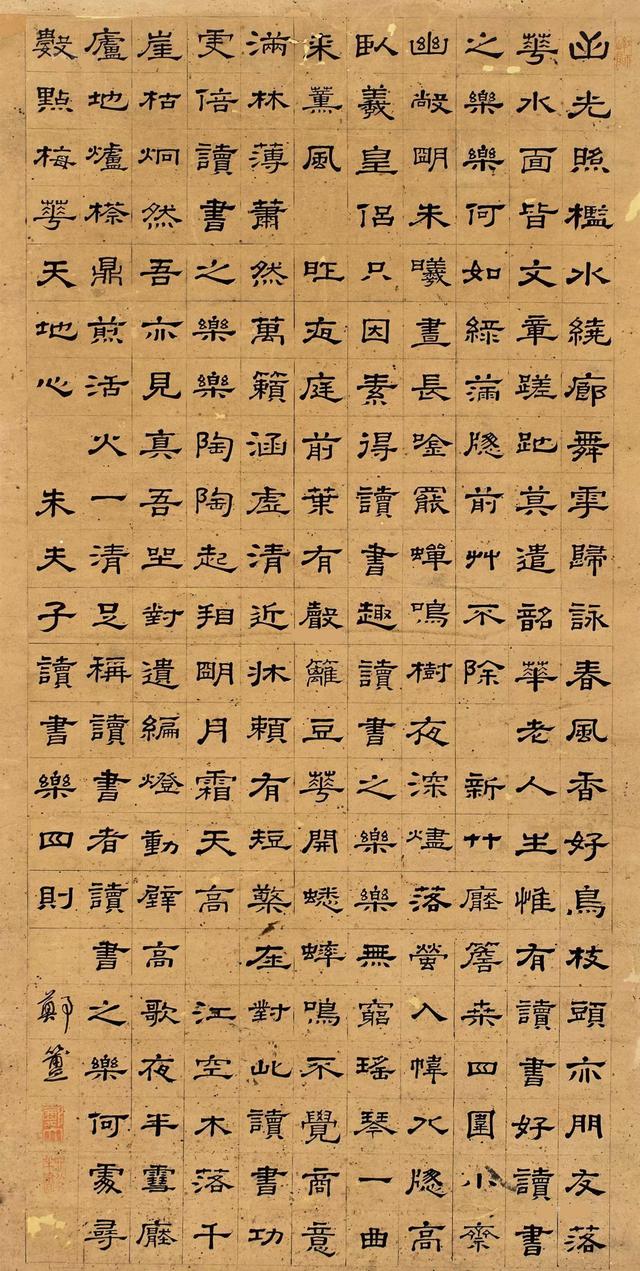 山光照檻水繞廊舞雩歸詠春風香好鳥枝頭亦朋友落
華水面皆文章蹉跎莫遣韶華老人生惟有讀書好讀書
之樂樂何如綠滿牕前艸不除 新竹壓簷桑四圍小齋
幽敞明朱曦晝長唫罷蟬鳴樹夜深燼落螢入幃北牕高
臥羲皇侶只因素得讀書趣讀書之樂樂無窮瑤琴一曲
來薰風 昨夜庭前葉有聲籬豆華開蟋蟀鳴不覺商意
滿林薄蕭然萬籟涵虛清近牀賴有短檠在對此讀書功
更倍讀書之樂樂陶陶起明月霜天高 江空木落千
崖枯炯然吾亦見真吾坐對遺編燈動壁高歌夜半雪壓
廬地爐茶鼎煎活火一清足稱讀書者讀書之樂何處尋
數點梅華天地心 朱夫子讀書樂四則 鄭簠